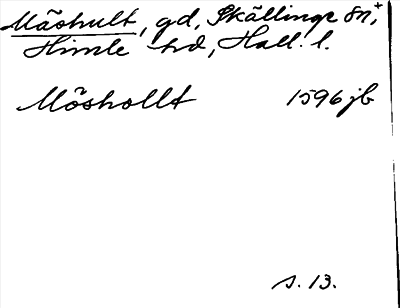 Mäshult, gd, Skällinge sn,+
Himle hd, Hall. l.
Möshollt 1596 jb
s. 13.